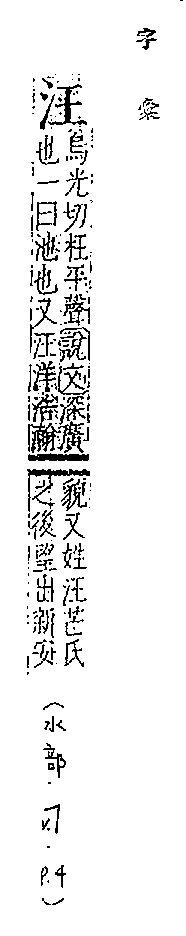 字彙
汪
烏光切枉平聲說文深廣
也一曰池也又汪洋浩瀚
貌又姓汪芒氏
之後望出新安
(水部.V.7.P.4)